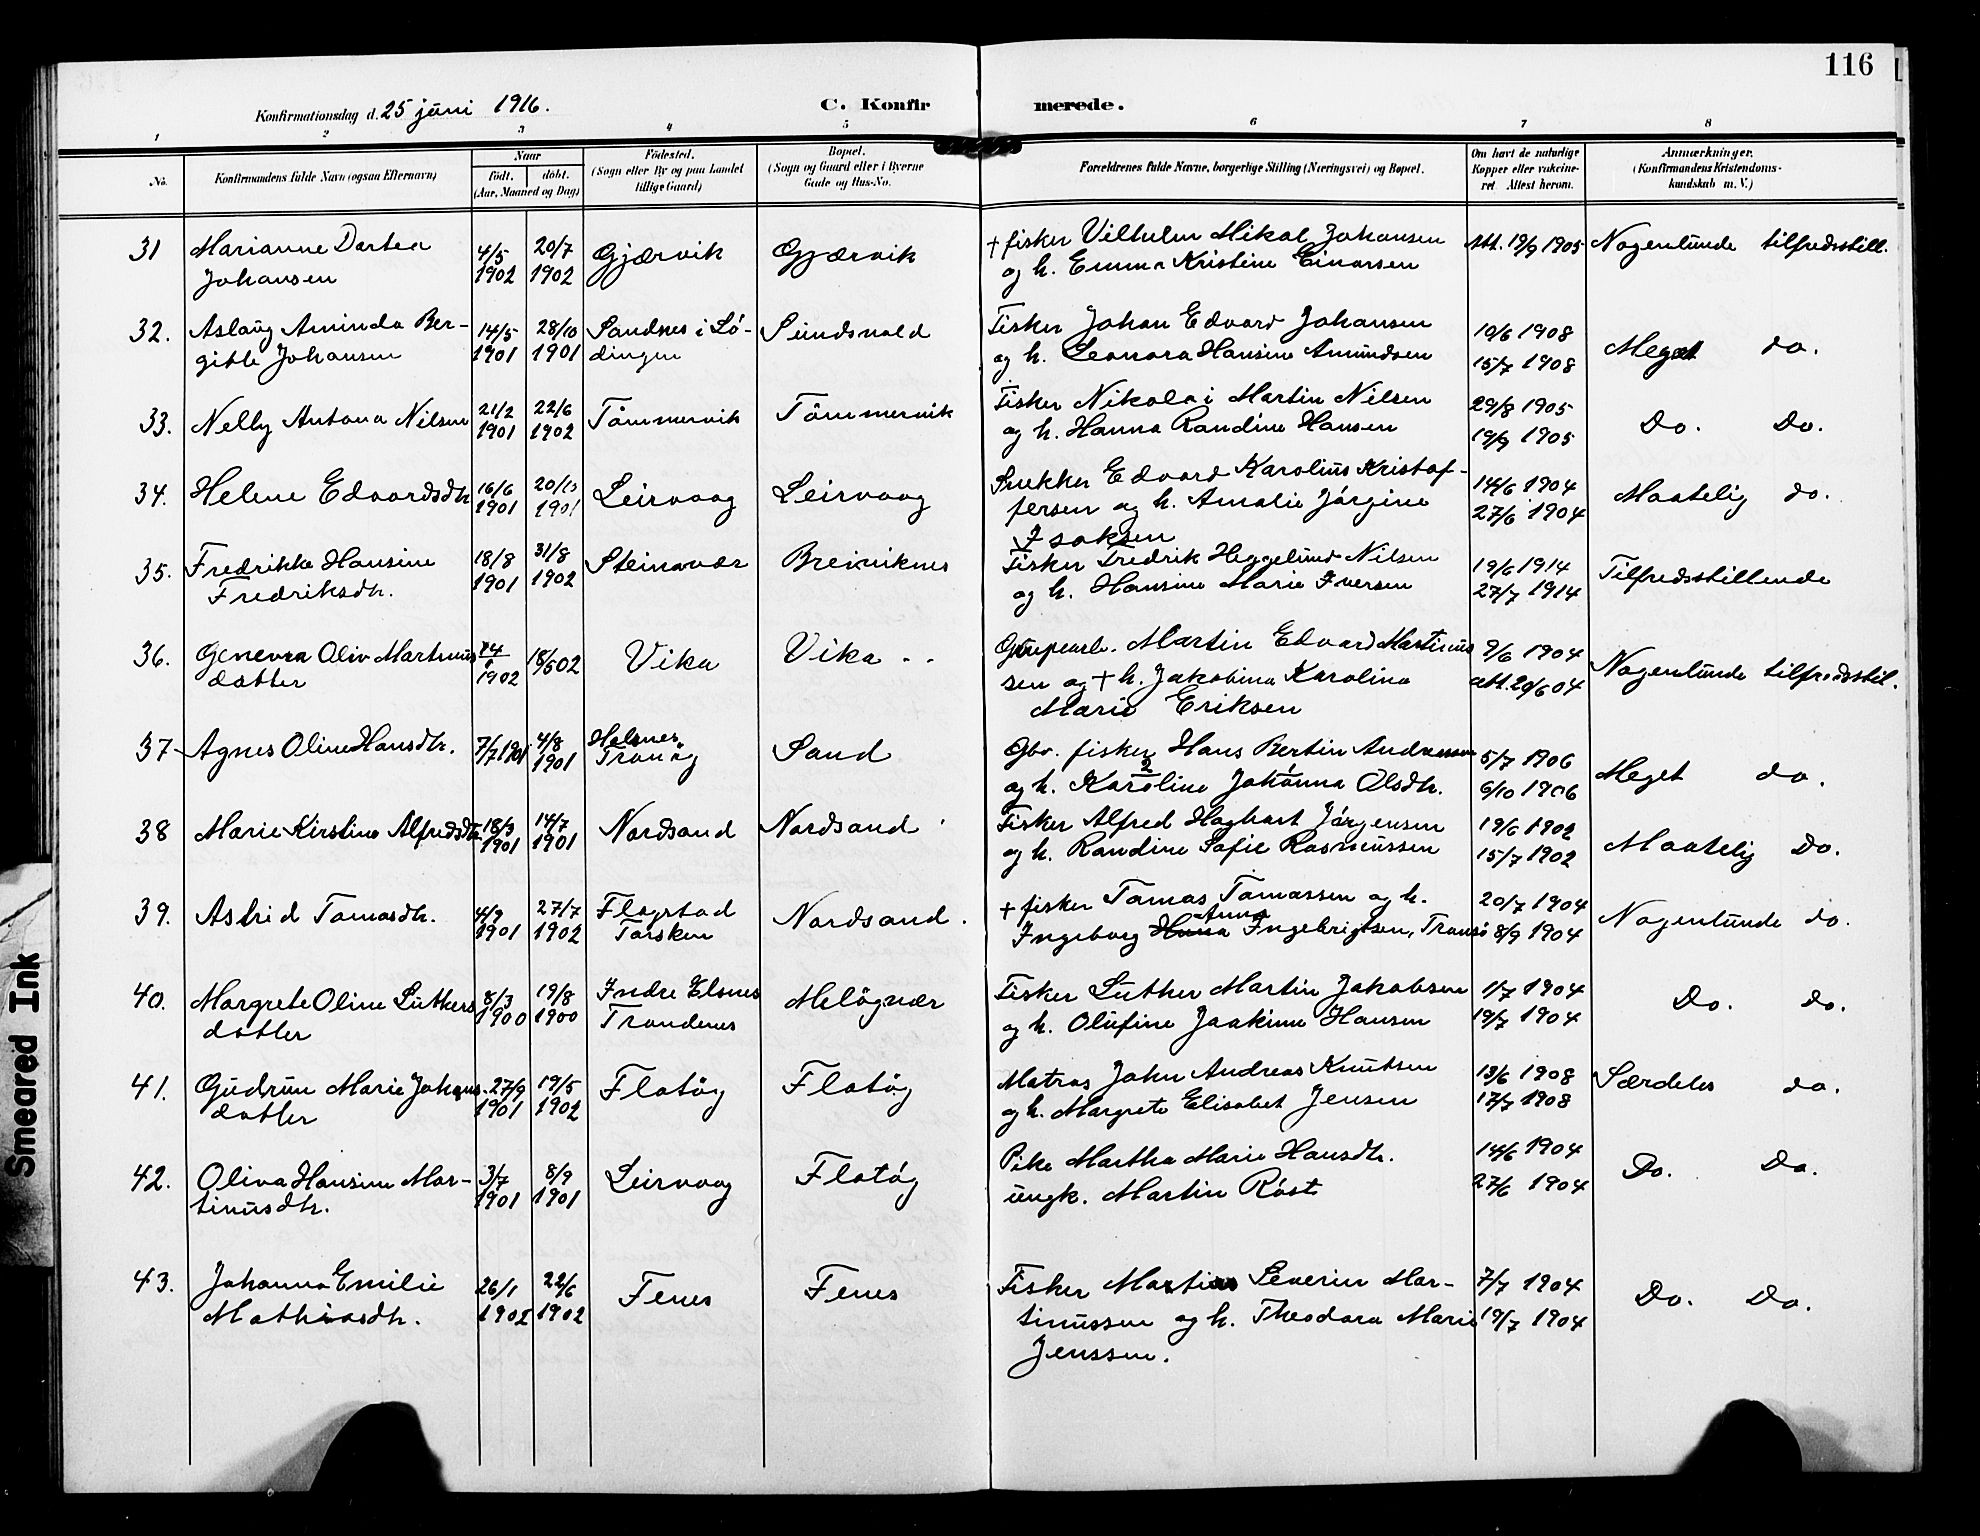 116
Konfirmationsdag d. 25 juni 1916.
C. Konfirmerede.
1 2 3 4 5 6 7 8
No.
Konfirmandens fulde Navn (ogsaa Efternavn)
Naar
født. døbt.
(Aar, Maaned og Dag)
Fødested.
(Sogn eller By og paa Landet
tillige Gaard)
Bopæl.
(Sogn og Gaard eller i Byerne
Gade og Hus-No.
Forældrenes fulde Navne, borgerlige Stilling (Næringsvei) og Bopæl.
Om havt de naturlige
Kopper eller vakcine-
ret. Attest herom.
Anmærkninger.
(Konfirmandens Kristendoms-
kundskab m. V.)
31 Marianne Dortea 4/5 20/7 Gjærvik Gjærvik † fisker Vilhelm Mikal Johansen Att. 19/9 1905 Nogenlunde tilfredsstill.
Johansen 1902 1902 og h. Emma Kristine Einarsen
32. Aslaug Aminda Ber- 14/5 28/10 Sandnes i Lø- Sundsvold Fisker Johan Edvard Johansen 19/6 1908 Meget do.
gitte Johansen 1901 1901 dingen og h. Leonora Hansine Amundsen 15/7 1908
33. Nelly Antona Nilsen 21/2 22/6 Tömmervik Tömmervik Fisker Nikolai Martin Nilsen 29/8 1905 Do. Do.
1901 1902 og h. Hanna Randine Hansen 19/9 1905
34. Helene Edvardsdtr 16/6 20/10 Leirvaag Leirvaag Snekker Edvard Karolius Kristof- 14/6 1904 Maatelig do.
1901 1901 fersen og h. Amalie Jørgine 27/6 1904
Isaksen
35. Fredrikke Hansine 18/8 31/8 Steinavær Breiviknes Fisker Fredrik Heggelund Nilsen 19/6 1914 Tilfredsstillende
Fredriksdtr. 1901 1902 og h. Hansine Marie Iversen 27/7 1914
36. Genevra Oliv Martinus 1902 18/5 02 Vika Vika Martin Edvard Martinus 9/6 1904 Nogenlunde tilfredsstil.
datter sen og † h. Jakobina Karolina att. 20/6 04
Marie Eriksen
37 Agnes Oline Hansdtr. 7/7 1901 4/8 Sand Gbr. fisker Hans Bertin Andreassen 5/7 1906 Meget do.
1901 Tranøy og h. Karoline Johanna Olsdtr. 9/10 1906
38 Marie Kirstine Alfredsdtr 18/3 14/7 Nordsand Nordsand Fisker Alfred Hagbart Jørgensen 19/6 1902 Maatelig Do.
1901 1901 og h. Randine Sofie Rasmussen 15/7 1902
39. Astrid Tomasdtr. 4/9 27/7 Flogstad Nordsand. † fisker Tomas Tomassen og h. 20/7 1904 Nogenlunde do.
1901 1902 Torsken Ingeborg Anna Ingebrigtsen, Tromsø 8/9 1904
40. Margrete Oline Luthers 8/3 19/8 Indre Elsnes Meløyvær Fisker Luther Martin Jakobsen 1/7 1904 Do. do.
datter 1900 1900 Trondenes og h. Olufine Jaakime Hansen 19/7 1904
41. Gudrun Marie Johans 27/9 19/5 Flatøy Flatøy Matros John Andreas Knutsen 13/6 1908 Særdeles do.
datter 1901 1902 og h. Margrete Elisabet Jensen 17/7 1908
42. Oliva Hansine Mar- 3/7 8/9 Leirvaag Flatøy Pike Martha Marie Hansdtr. 14/6 1904 Do. Do.
tinusdtr. 1901 1901 ungk. Martin Røst 27/6 1904
43. Johanna Emilie 26/1 22/6 Fenes Fenes Fisker Severin Mar- 7/7 1904 Do. Do.
Mathiasdtr. 1902 1902 tinussen og h. Theodora Marie 19/7 1904
Jenssen.
Smeared Ink